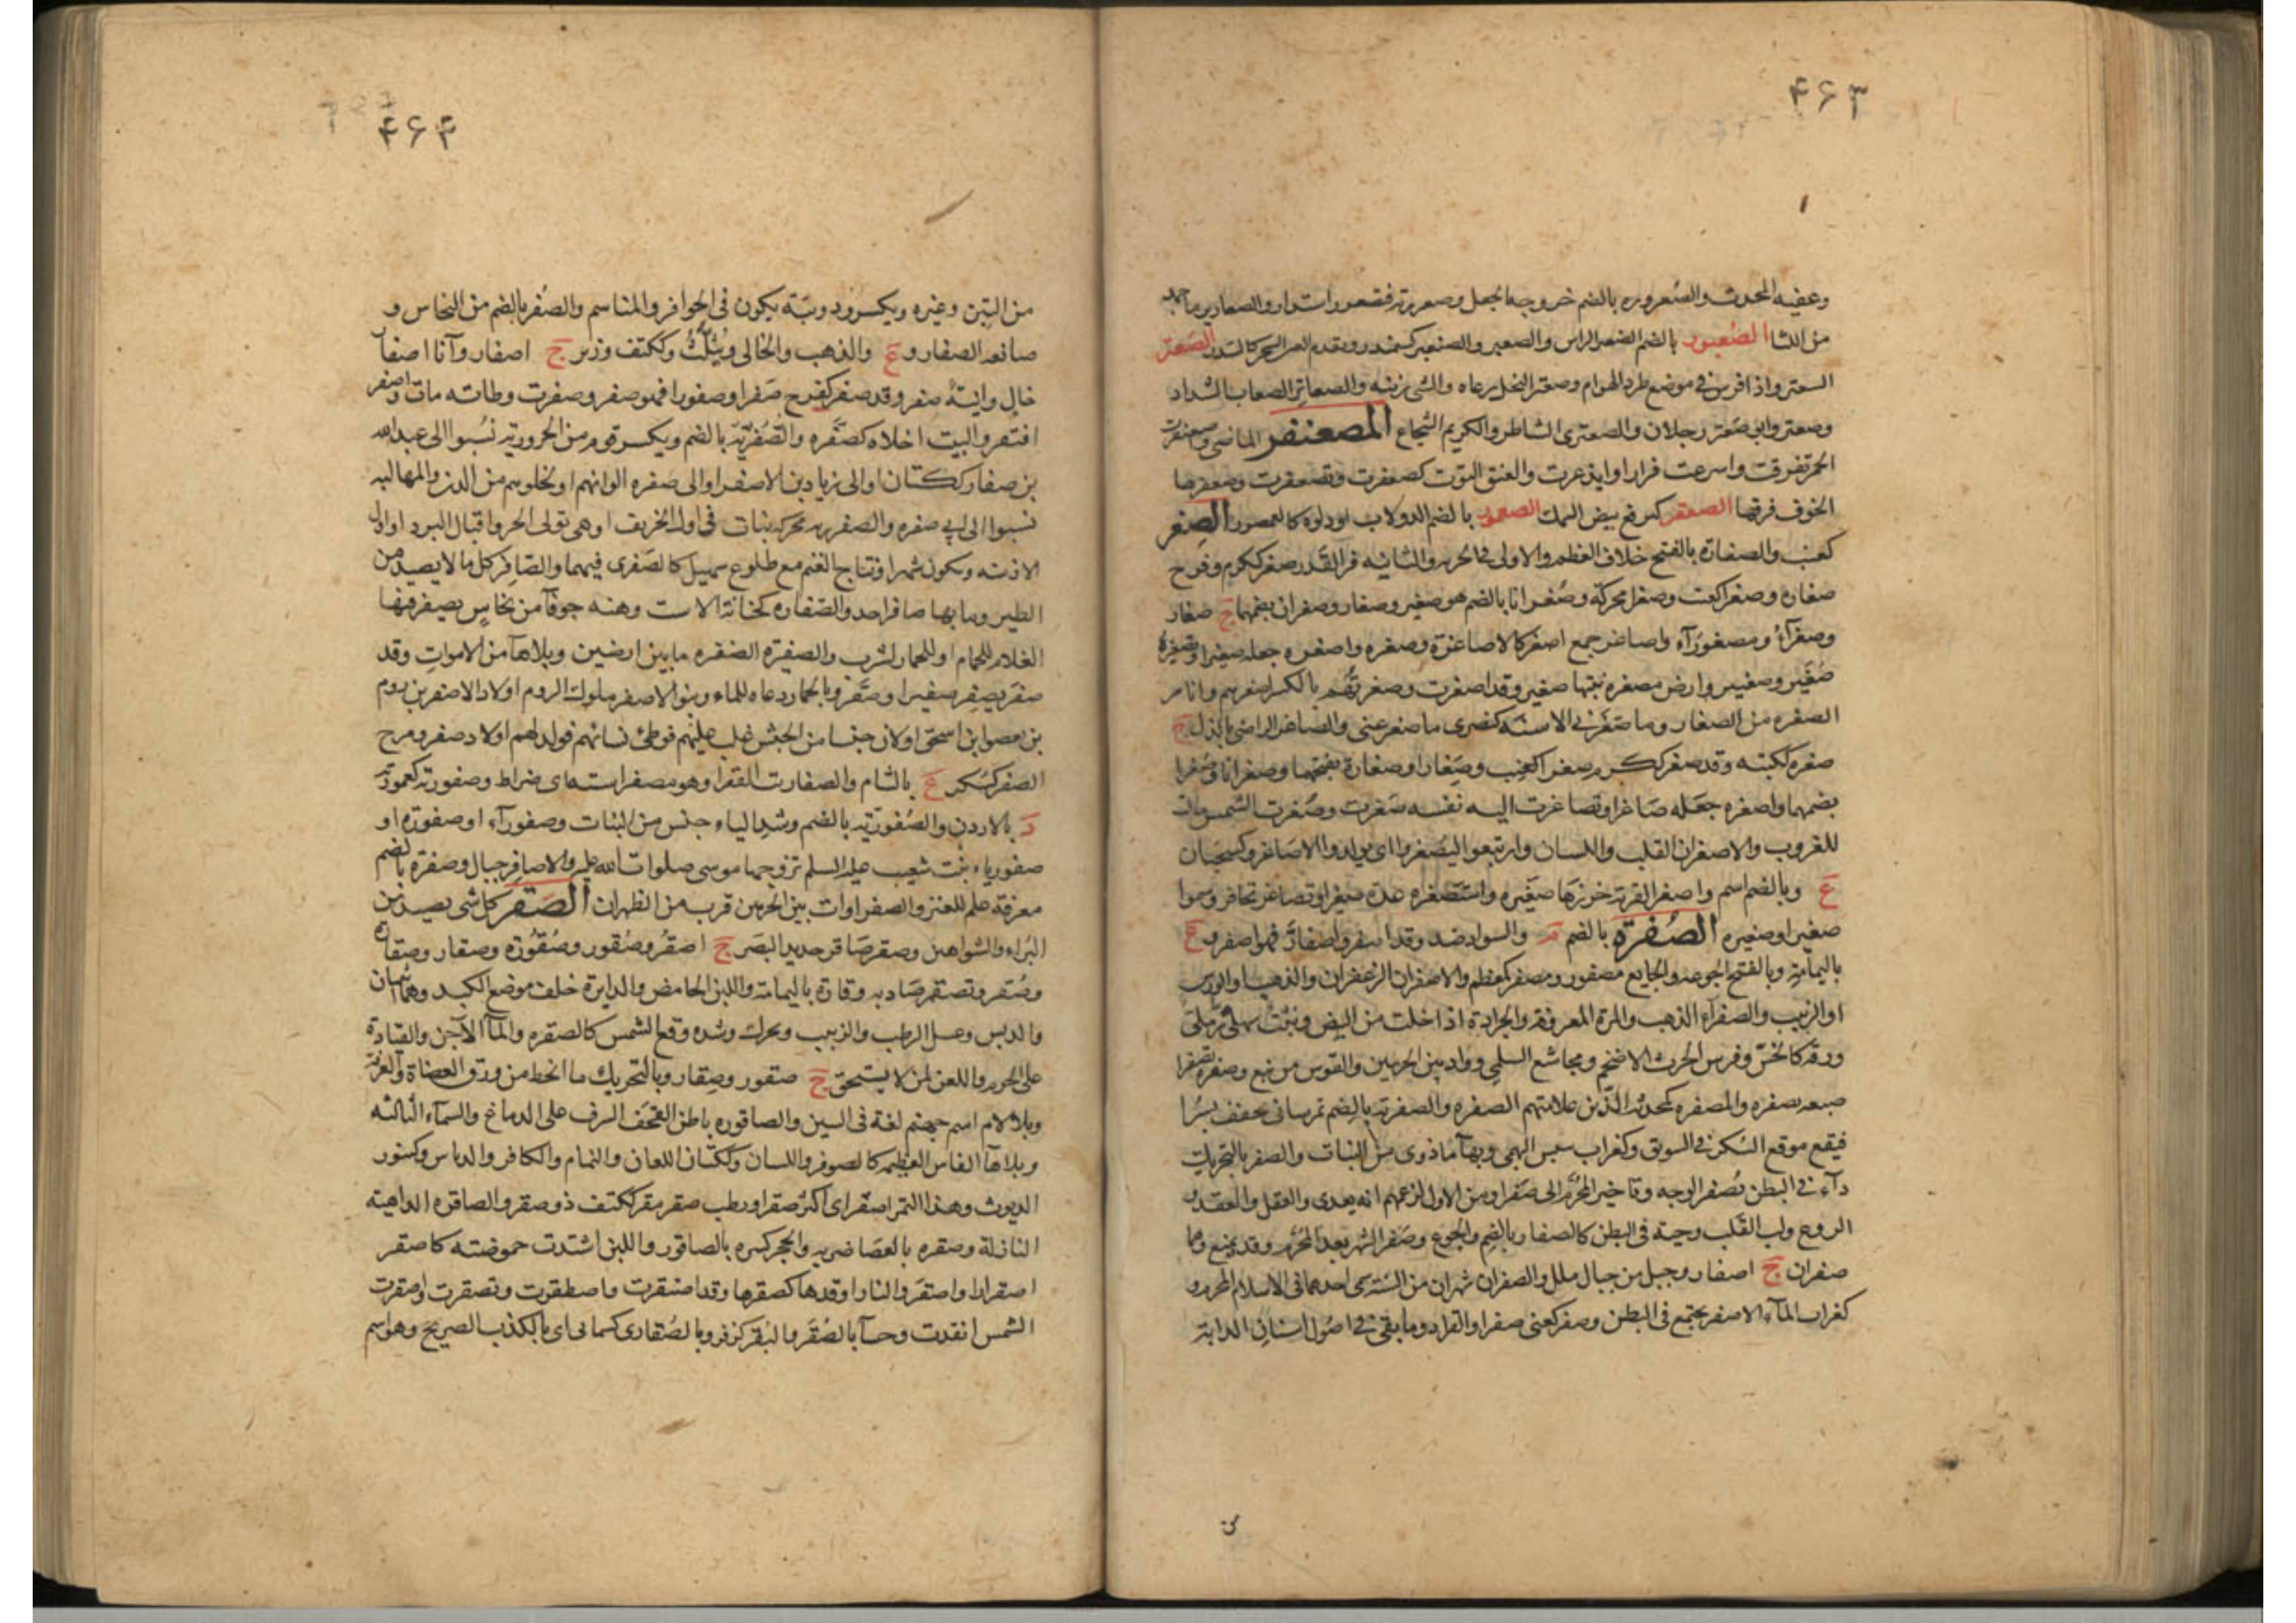 ۴۶۳
وعفيه المحدث والصعروره بالضم خروجها لجعل وصعررته فتصعرر استدار والصعارير ما جمد
من اللثا الصعبور بالضم الصغير الراس والصعبر والصنعبر كسمندر وتقدم السحر كالسدر الصعتر
السعتر واذا فرش في موضع طرد الهوام وصعتر النحل يرعاه والشى زينه والصعاتر الصعاب الشداد
وصعتر وابن صعتر رجلان والصعترى الشاطر والكريم الشجاع المصعنفر الماضى وصعنفرت
الحمر تفرقت واسرعت فرارا وابذعرت والعنق التوت كصعفرت وتصعفرت وصعفرها
الخوف فرقها الصعقر كبرقع بيض السمك الصعمور بالضم الدولاب او دلوه كالعصمور الصغر
كعنب والصغارة بالفتح خلاف العظم والاولى فى الجرم والثانيه فى القدر صغر ككرم وفرح
صغاره وصغرا كعنب وصغرا محركة وصغرانا بالضم هو صغير وصغار وصغران بضمهما ج صغار
وصغرآء ومصغورآء واصاغر جمع اصغر كالاصاغرة وصغره واصغره جعله صغيرا وتصغيره
صغير وصغيير وارض مصغره نبتها صغير وقد اصغرت وصغرتهم بالكسر اصغرهم وانا من
الصغره من الصغار وما صغرنى الا سنه كنصرى ما صغر عنى والصاغر الراضى بالذل ج
صغره ككتبه وقد صغر ككرم صغرا كعنب وصغارا وصغارة بفتحهما وصغرانا وصغرا
بضمهما واصغره جعله صاغرا وتصاغرت اليه نفسه صغرت وصغرت الشمس مالت
للغروب والاصغران القلب واللسان وارتبعوا ليصغروا اى يولدوا الاصاغر وكسحبان
ع وبالضم اسم واصغر القربة خرزها صغيره واستصغره عده صغيرا وتصاغر تحاقر وسموا
صغيرا وصغيره الصفرة بالضم م والسواد ضد وقد اصفر واصفار فهو اصفر و ع
باليمامة وبالفتح الجوعه والجايع مصفور ومصفر كمعظم والاصفران الزعفران والذهب او الورس
او الزبيب والصفرآء الذهب والمرة المعروفة والجرادة اذا خلت من البيض ونبت سهلى رملى
ورقه كالخس وفرس الحرث الاضخم ومجاشع السلمى وواد بين الحرمين والقوس من نبع وصفره تصفيرا
صبغه بصفره والمصفره كمحدثه الذين علامتهم الصفره والصفرية بالضم تمر يمانى يجفف بسرا
فيقع موقع السكر فى السويق وكغراب يبيس البهمى وبهآء ما ذوى من النبات والصفر بالتحريك
دآء فى البطن يصفر الوجه وتاخير المحرم الى صفر او من الاول لزعمهم انه يعدى والعقل والعقد و
الروع ولب القلب وحية فى البطن كالصفار بالضم والجوع وصفر الشهر بعد المحرم وقد يمنع وهما
صفران ج اصفار وجبل من جبال ملل والصفران شهران من السنة سمى احدهما فى الاسلام المحرم و
كغراب المآء الاصفر يجتمع فى البطن وصفر كعنى صفرا والقراد وما بقى فى اصول اسنان الدابة
۴۶۴
من التبن وغيره ويكسر ودويبة يكون فى الحوافر والمناسم والصفر بالضم من النحاس و
صانعه الصفار و ع والذهب والخالى ويثلث وككتف وزبر ج اصفار وآنا اصفار
خال وانية صفر وقد صفر كفرح صفرا وصفورا فهو صفر وصفرت وطابه مات واصفر
افتقر والبيت اخلاه كصفره والصفرية بالضم ويكسر قوم من الحرورية نسبوا الى عبدالله
بن صفار ككتان او الى زياد بن الاصفر او الى صفره الوانهم او لخلوهم من الدين والمهالبه
نسبوا الى ابى صفره والصفريه محركه نبات فى اول الخريف او هى تولى الحر واقبال البرد او اول
الازمنه وتكون شهرا ونتاج الغنم مع طلوع سهيل كالصفرى فيهما والصافر كل ما لا يصيد من
الطير وما بها صافر احد والصفاره كجبانة الاست وهنه جوفآء من نحاس يصفر فيها
الغلام للحمام او للحمار ليشرب والصفيرة الضفره ما بين ارضين وبلاهآء من الاصوات وقد
صفر يصفر صفيرا وصفر وبالحمار دعاه للماء وبنو الاصفر ملوك الروم اولاد الاصفر بن روم
بن يعصو ابن اسحق او لان جيشا من الحبش غلب عليهم فوطئ نسائهم فولد لهم اولاد صفر ومرج
الصفر كسكر ع بالشام والصفاريت الفقرا وهو مصفر استه اى ضراط وصفورية كعمورية
د بالاردن والصفورية بالضم وشد الياء جنس من النبات وصفورآء او صفورة او
صفورياء بنت شعيب عليه السلم تزوجها موسى صلوات الله عليه والاصافر جبال وصفرة بالضم
معرفة علم للعنز والصفراوات بين الحرمين قرب من الظهران الصقر كل شى يصيد من
البزاة والشواهين وصقر صاقر حديد البصر ج اصقر وصقور وصقورة وصقار وصقارة
وصقر وتصقر صاد به وقارة باليمامة واللبن الحامض والدايرة خلف موضع الكبد وهما ثنتان
والدبس وعسل الرطب والزبيب ويحرك وشده وقع الشمس كالصقره والمآ الآجن والقيادة
على الحرم واللعن لمن لا يستحق ج صقور وصقار وبالتحريك ما انحط من ورق العضاة والعرفط
وبلا لام اسم جهنم لغة فى السين والصاقوره باطن القحف المشرف على الدماغ والسمآء الثالثه
وبلا هآء الفاس العظيمة كالصوقر واللسان وككتان اللعان والنمام والكافر والدباس وكتنور
الديوث وهذا التمر اصقر اى اكثر صقرا ورطب صقر مقر ككتف ذو صقر والصاقره الداهية
النازلة وصقره بالعصا ضربه والحجر كسره بالصاقور واللبن اشتدت حموضته كاصقر
اصقرارا واصقر والنار اوقدها كصقرها وقد اصتقرت واصطقرت وتصقرت واصقرت
الشمس اتقدت وجآء بالصقر والبقر كزفر وبالصقارى كسمانى اى بالكذب الصريح وهو اسم